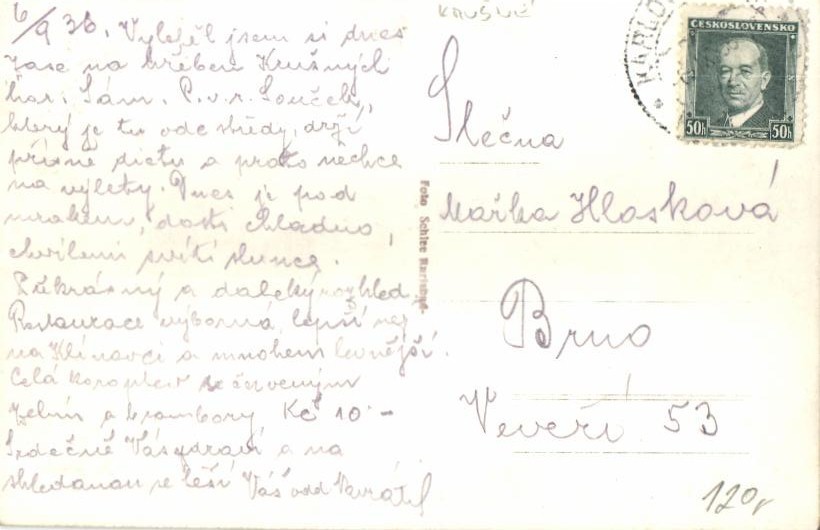 6/9 36. Vylezěl jsem si dnes
zase na hřeben Krušných
hor. Sám. P. v. r. Souček,
který je tu ode středy, drží
přísně dietu a proto nechce
na výlety. Dnes je pod
mrakem, dosti chladno,
chvílemi svítí slunce.
Překrásný a daleký rozhled.
Restaurace výborná, lepší než
na Klínovci a mnohem levnější.
Celá koroptev se červeným
zelím a brambory Kč 10.-
Srdečně Vás zdraví a na
shledanou se těší Váš odd. Navrátil
KRUŠNÉ
KARLOV
ČESKOSLOVENSKO
50h 50h
Slečna
Mařka Hlosková
Brno
Veveří 53
Foto Schlee Karlsbad.
120,